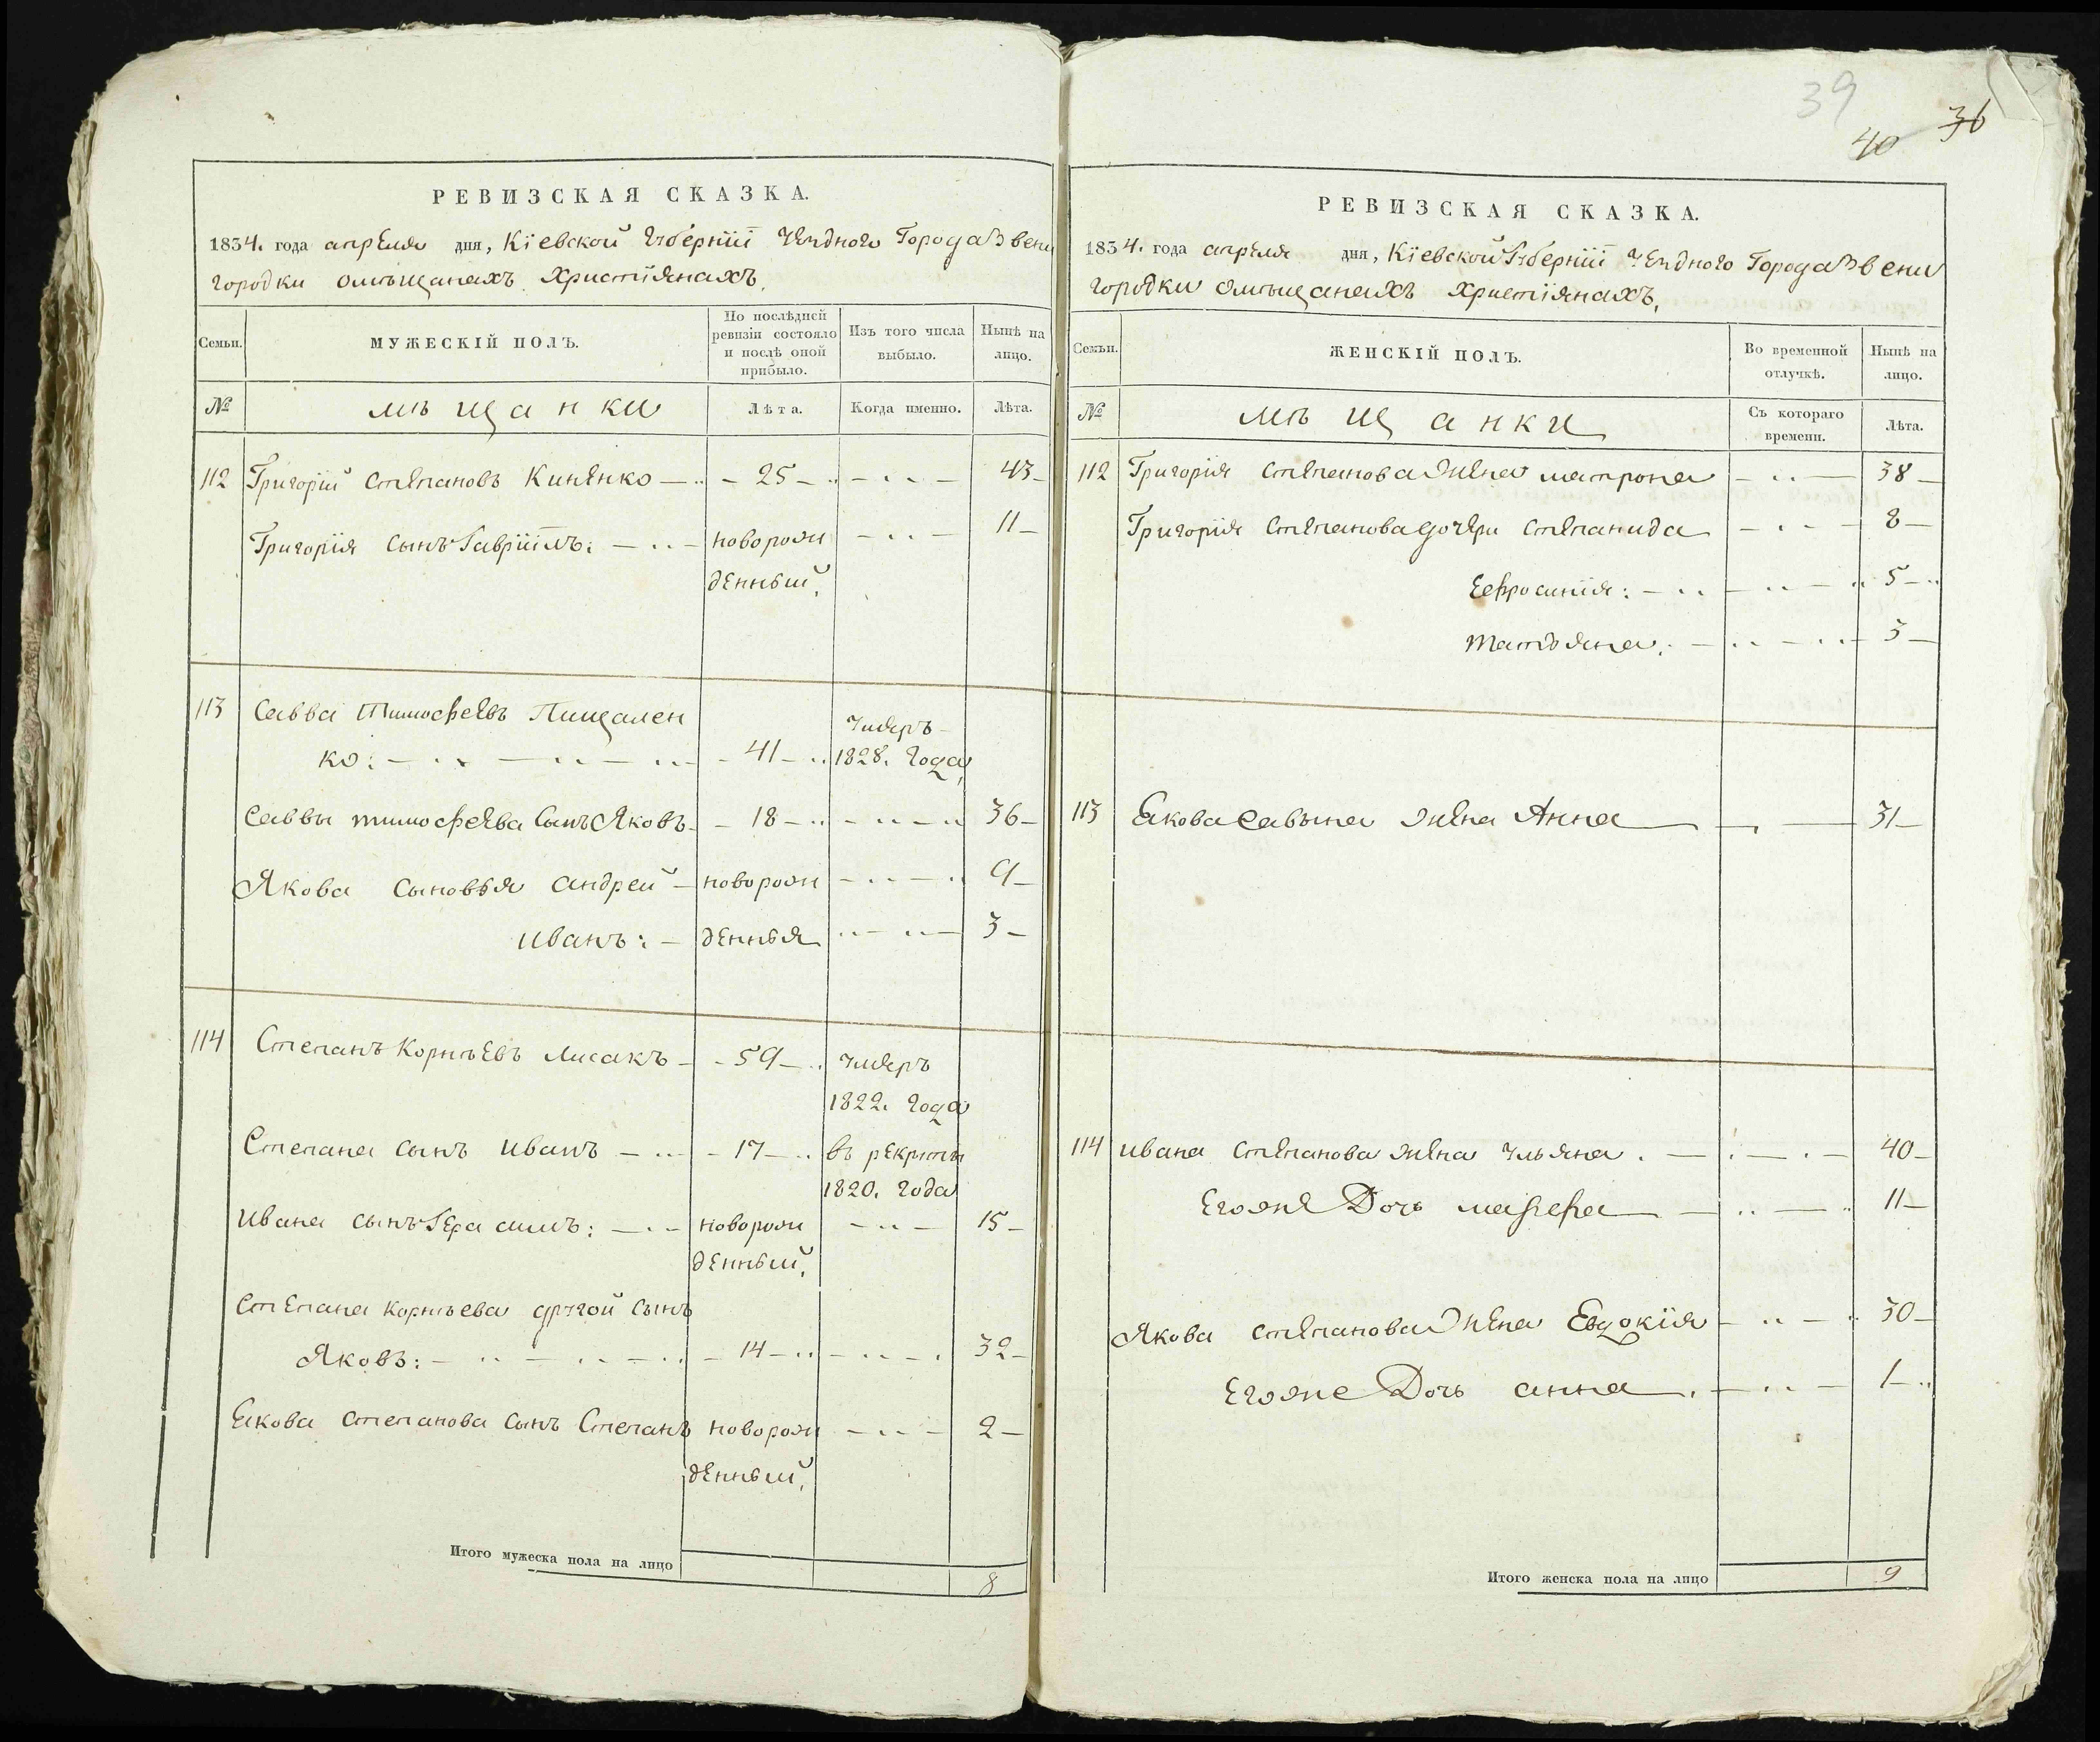 39
40 36
РЕВИЗСКАЯ СКАЗКА.
1834. года апреля дня, Кіевской Губерніи уезднаго Города Звени
городки омѣщанахъ Христіянахъ.
Семьи. МУЖЕСКІЙ ПОЛЪ. По послѣдней ревизіи состояло и послѣ оной прибыло. Изъ того числа выбыло. Нынѣ на лицо.
№ мѣщанки Лѣта. Когда именно. Лѣта.
112 Григорій Степановъ Киненко 25 43
Григорія сынъ Гавріилъ: новорож 11
денный,
113 Савва Тимофеевъ Пищален умеръ
ко: 41 1828. года,
Саввы тимофеева сынъ Яковъ 18 36
Якова сыновья андрей новорож 9
иванъ: денныя 3
114 Степанъ Корнѣевъ Лисакъ 59 умеръ
1822. года
Степана сынъ иванъ 17 въ рекруты
1820. года
Ивана сынъ Герасимъ: новорож 15
денный,
Степана Корнѣева другой сынъ
Яковъ: 14 32
Екова степанова сынъ Степанъ новорож 2
денный,
Итого мужеска пола на лицо 8
РЕВИЗСКАЯ СКАЗКА.
1834. года апреля дня, Кіевской Губерніи уезднаго Города Звени
городки омѣщанахъ христіянахъ.
Семьи. ЖЕНСКІЙ ПОЛЪ. Во временной отлучкѣ. Нынѣ на лицо.
№ мѣщанки Съ котораго времени. Лѣта.
112 Григорія степанова жена матрона 38
Григорія степанова дочери степанида 8
Ефросинія: 5
татьяна: 3
113 Екова савына жена Анна 31
114 ивана степанова жена ульяна. 40
Егоже Дочь марфа 11
Якова степанова жена Евдокія 30
Егоже Дочь анна. 1
Итого женска пола на лицо 9